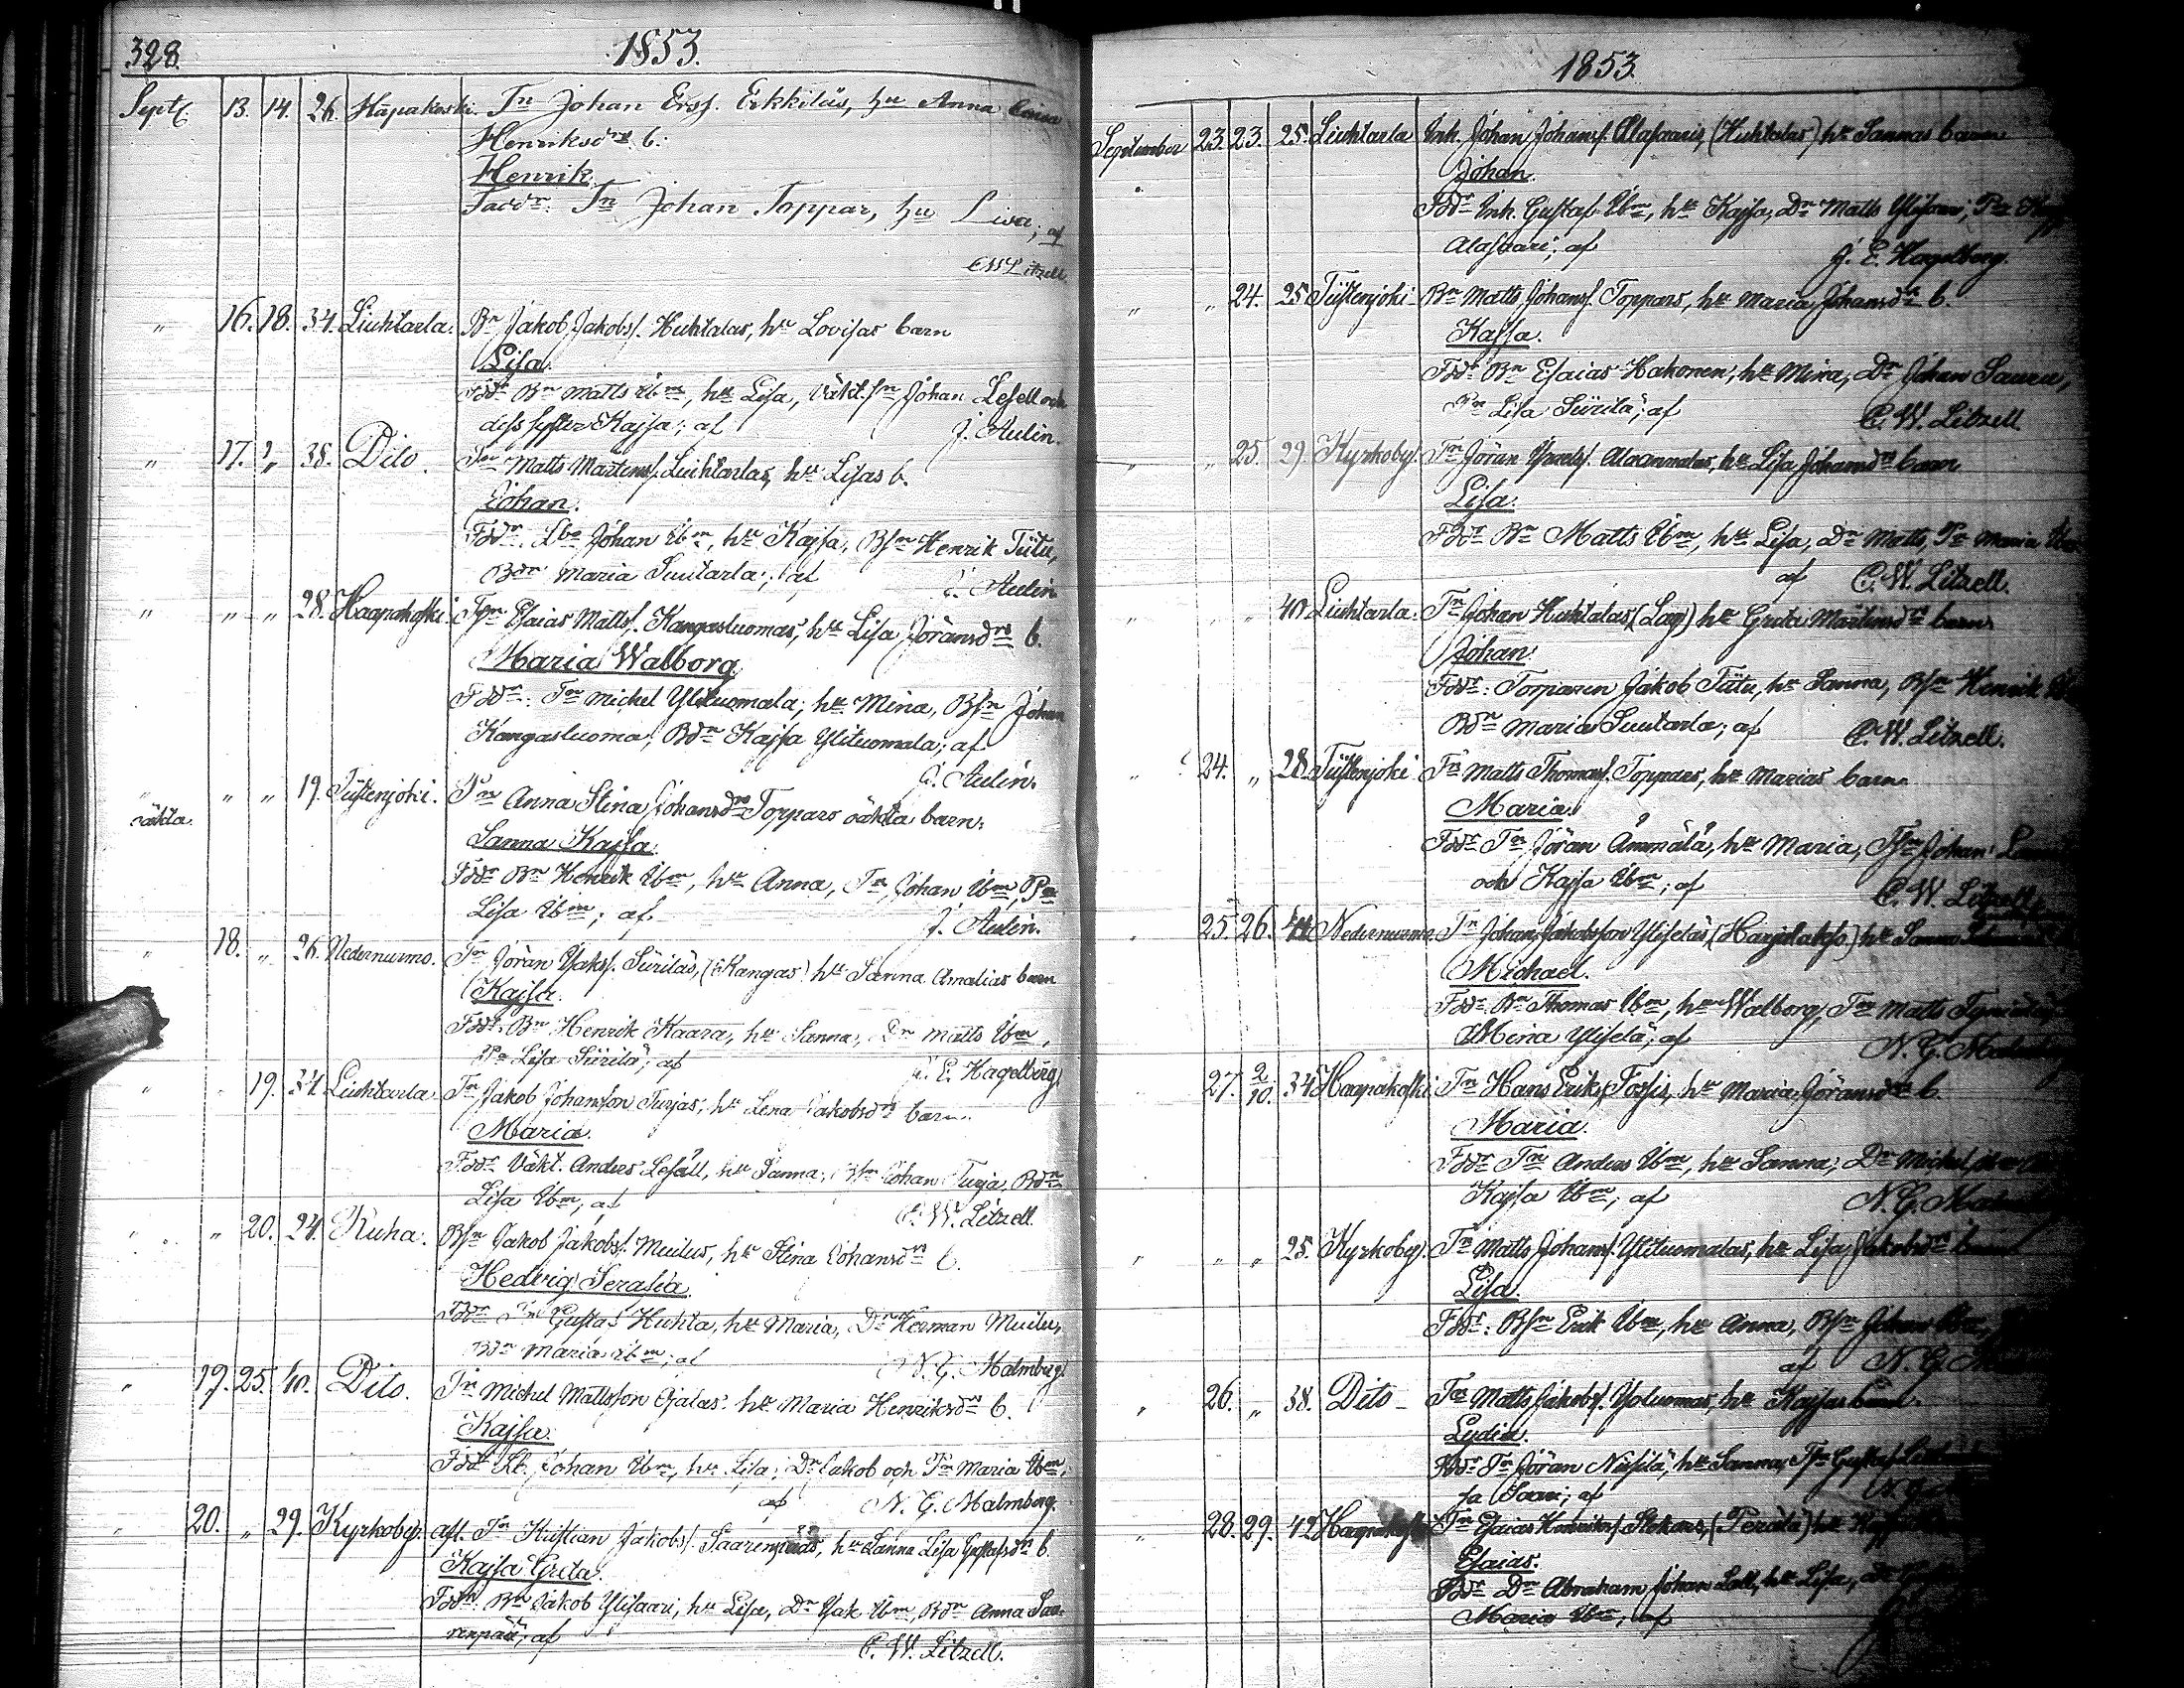 328.
1853.
Septb. 13. 14. 26. Hapakoski. Tn Johan Erss. Erkkiläs, hu Anna Caisa
Henriksdrs b:
Henrik
Faddr: Tn Johan Toppar, hu Lisa; af
CWLitzell.
" 16. 18. 34. Liuhtarla. Bn Jakob Jakobss. Huhtalas, hu Lovisas barn
Lisa.
Fddr Bn Matts Ibm, hu Lisa, Väkt.sn Johan Lesell och
dess syster Kajsa; af J. Aulin.
" 17. " 38. Dito. Tn Matts Martinss. Liuhtarlas, hu Lisas b.
Johan.
Fddr. Lbn Johan Ibm, hu Kajsa, Bsn Henrik Tiitu,
Bdr Maria Suutarla; af J. Aulin
" " " 28. Haapakoski. Tsn Esaias Matts. Kangasluomas, hu Lisa Jöransdrs b.
Maria Walborg.
Fddr: Tn Michel Ylituomala, hu Mina, Bsn Johan
Kangasluoma, Bdr Kajsa Ylituomala; af
J. Aulin.
" " " 19. Tiistenjoki. Pn Anna Stina Johansdrs Toppars oäkta barn.
oäkta.
Sanna Kajsa.
Fddr Bn Henrik Ibm, hu Anna, Tn Johan Ibm, Pn
Lisa Ibm; af J. Aulin.
" 18. " 26. Nedernurmo. Tn Jöran Isaks. Siiriläs, (Kangas) hu Sanna Amalias barn
Kajsa.
Fddr. Bn Henrik Kaara, hu Sanna, Dn Matts Ibm,
Pn Lisa Siirilä; af J. E. Hagelberg.
" " 19. 34. Liuhtarla. Tn Jakob Johansson Turjas, hu Lena Jakobsdrs barn.
Maria.
Fddr Väkt. Anders Lesäll, hu Sanna, Bsn Johan Turja, Bdr
Lisa Ibm; af C. W. Litzell.
" " 20. 24. Ruha. Bsn Jakob Jakobs. Muilus, hu Stina Johansdrs b.
Hedvig Serafia.
Fddr Tn Gustaf Huhta, hu Maria, Dn Herman Muilu,
Bdr Maria Ibm; af N. G. Malmberg.
" 19. 25. 40. Dito. Tn Michel Mattsson Ojalas hu Maria Henriksdrs b.
Kajsa.
Fddr Lb. Johan Ibm, hu Lisa, Dn Jakob och Pn Maria Ibm,
af N. G. Malmberg.
" 20. " 29. Kyrkoby. afl. Tn Kristian Jakobs. Saarenpääs, hu Sanna Lisa Gustafsdrs b.
Kajsa Greta.
Fddr. Bn Jakob Ylisaari, hu Lisa, Dn Isak Ibm, Bdr Anna Saa-
renpää; af C. W. Litzell.
1853.
September 23. 23. 25. Liuhtarla Inh. Johan Johans. Alasaaris, (Huhtalas) hu Sannas barn
Johan.
Fddr Inh. Gustaf Ibm, hu Kajsa, Dn Matts Ylisaari, Pn
Alasaari; af J. E. Hagelberg.
" " 24. 25 Tiistenjoki Bn Matts Johans. Toppars, hu Maria Johansdrs b.
Kajsa.
Fddr Bn Esaias Hakonen, hu Mina, Dn Johan Sauru,
Pn Lisa Siirilä; af C. W. Litzell
" " 25. 29. Kyrkoby. Tn Jöran Israels. Alaanmalas, hu Lisa Johansdrs barn
Lisa.
Fddr Bn Matts Ibm, hu Lisa, Dn Matts, Pn Maria Ibm
af C. W. Litzell.
" " " 40 Liuhtarla. Tn Johan Huhtalas (Lag) hu Greta Martinsdrs barn
Johan.
Fddr: Torparen Jakob Tiitu, hu Sanna, Bsn Henrik
Bdr Maria Suutarla; af C. W. Litzell.
" 24. " 28. Tiistenjoki Tn Matts Thomas. Toppars, hu Marias barn
Maria.
Fddr Tn Jöran Ämmälä, hu Maria, Tsn Johan
och Kajsa Ibm; af C. W. Litzell.
25. 26. Nedernurmo. Tn Johan Jakobsson Yliseläs (Harjulakso) hu Sanna
Michael.
Fddr Bn Thomas Ibm, hu Walborg, Tn Matts
Mina Yliselä; af N. G. Malmberg
27. 2/10. 34 Haapakoski Tn Hans Eriks. Forsis, hu Maria Jöransdrs b.
Maria.
Fddr Tn Anders Ibm, hu Sanna, Dn Michel
Kajsa Ibm; af N. G. Malm
" " " 25. Kyrkoby. Tn Matts Johans. Ylituomalas, hu Lisa Jakobsdrs barn
Lisa.
Fddr: Bsn Erik Ibm, hu Anna, Bsn Johan Ibm,
af N. G. M
" 26. " 38. Dito Tn Matts Jakobs. Isoluomas, hu Kajsas barn
Lydia.
Fddr Tn Jöran Niisilä, hu Sanna, Tsn Gustaf
sa Saari; af
" 28. 29. 42 Haapakoski Tn Esaias Henriks. (Perälä) hu
Esaias.
Fddr Dn Abraham Johan Lall, hu Lisa,
Maria Ibm; af